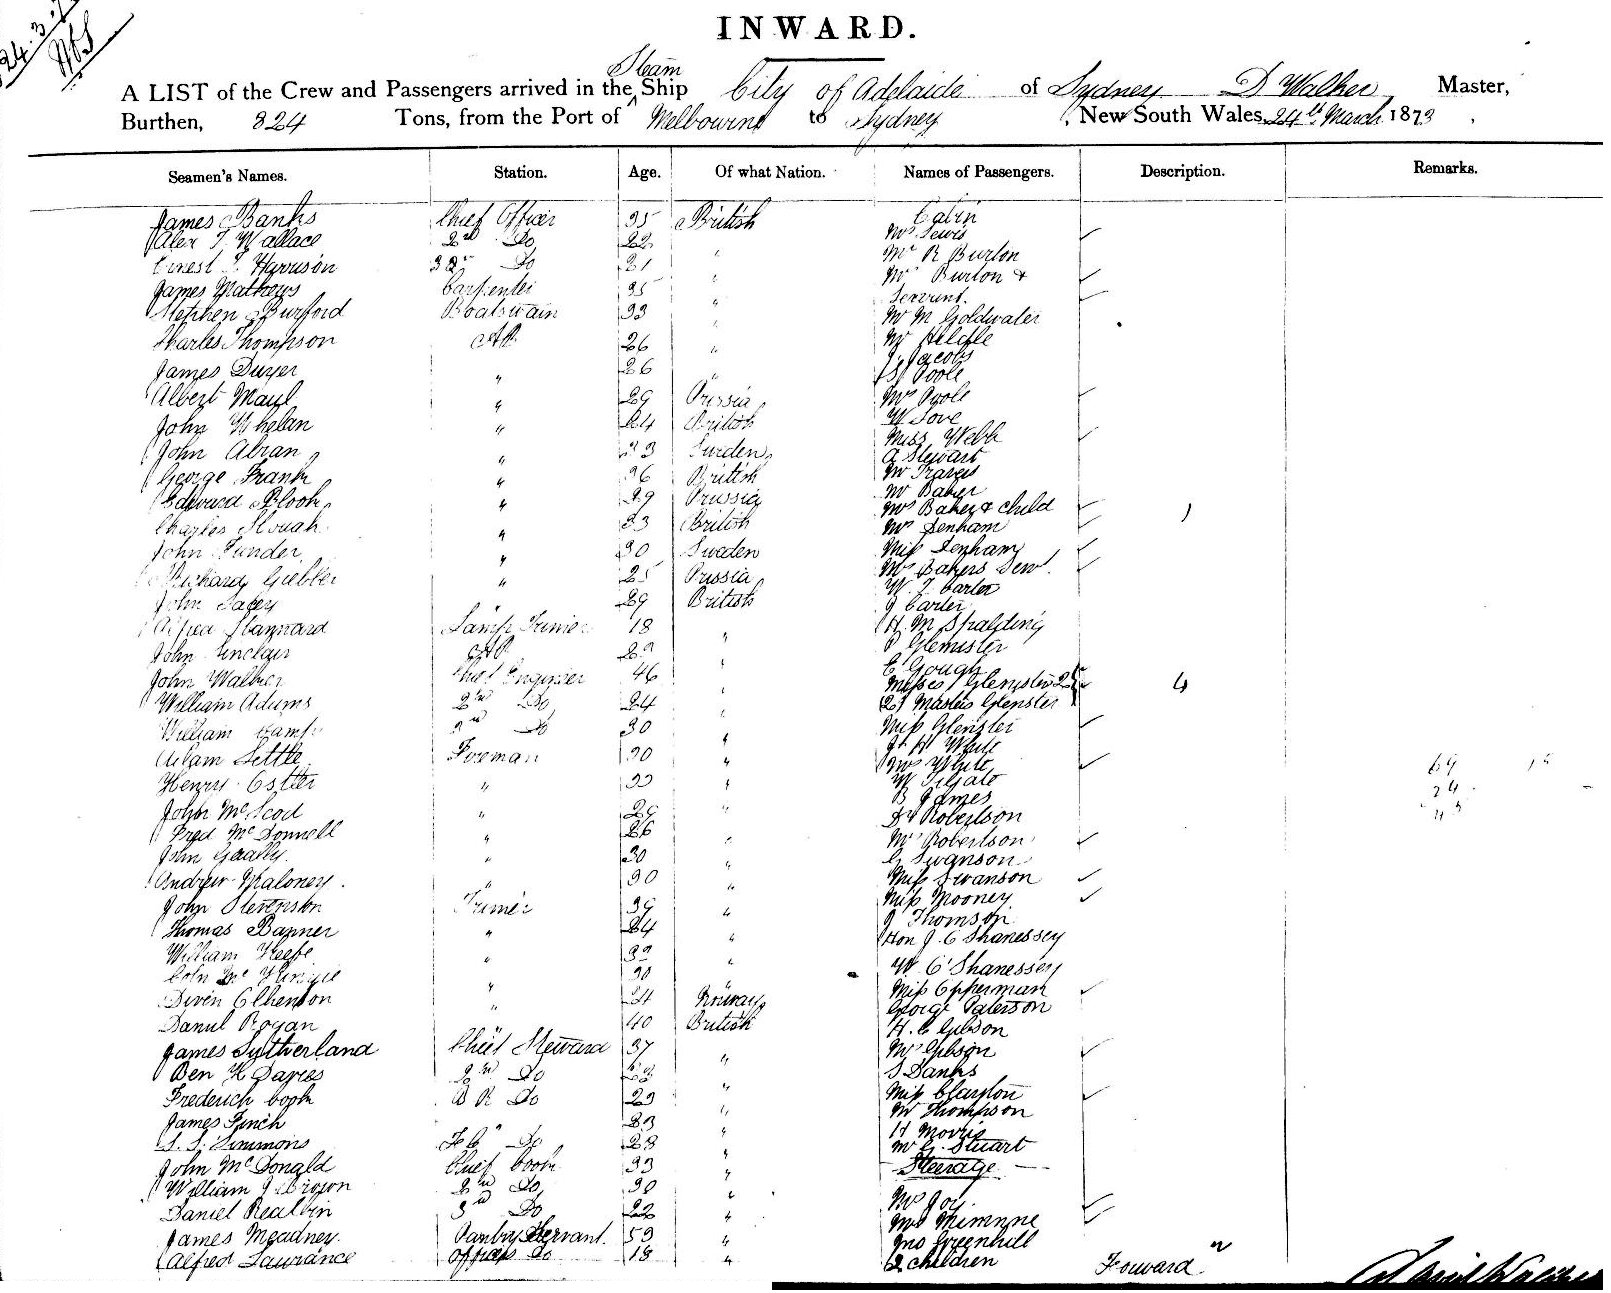 24.3.7
INWARD.
Steam
A LIST of the Crew and Passengers arrived in the ^ Ship City of Adelaide of Sydney D Walker Master,
Burthen, 824 Tons, from the Port of Melbourne to Sydney, New South Wales, 24th March 1873
Seamen's Names. Station. Age. Of what Nation. Names of Passengers. Description. Remarks.
James Banks Chief Officer 35 British Cabin
Alex T Wallace 2nd Do 22 " Mrs Lewis
Ernest T Harrison 3rd Do 21 " Mr R Burton
James Mathews Carpenter 35 " Mrs Burton &
Stephen Burford Boatswain 33 " Servant.
Mr M Goldwater
Charles Thompson AB 26 " Mr
J Jacobs
James Dwyer " 26 " Poole
Albert Mayl " 29 Prussia Mrs Poole
John Whelan " 24 British W Love
John Abran " 33 Sweden Miss Webb
A Stewart
George Frank " 36 British Mr Travers
Edward Block " 29 Prussia Mr Baker
Charles Slough " 33 British Mrs Baker & child 1
Mrs Denham
John Funder " 30 Sweden Miss Denham
Richard Giebler " 25 Prussia Mrs Bakers Serv.
W. T. Carter
John " 29 British J Carter
Alfred Stannard Lamp Trimer 18 " H. M Spalding
John Sinclair AB " P Glenister
C Gough
John Walker Chief Engineer 46 " Misses Glenister 2 4
William Adams 2nd Do 24 " 2 Masters Glenister
William 3rd Do 30 " Miss Glenister
J. H White
Adam Settle Foreman 30 " Mrs White
Henry " 33 " W
B James
John McLeod " 29 " Dr Robertson
Fred McDonnell " 26 " Mrs Robertson
John " 30 " G Swanson
Andrew Maloney. " 30 " Miss Swanson
Miss Mooney
John Stevenson Trimer 39 " J Thomson
Thomas Banner " 24 " Hon J. O'Shanessey
William Keefe " 32 "
Colin Mc " 30 " W O'Shanessey
" 24 Norway Miss Opperman
George Paterson
Daniel Rogan " 40 British H. C Gibson
James Sutherland Chief Steward 37 " Mrs Gibson
Ben H Davies 2nd Do " S Banks
Frederick Cook B R Do 23 " Miss Clayton
Mr Thompson
James Finch " 23 " H Morris
S. S. Simmons F C Do 28 " Mr G. Stuart
John McDonald Chief Cook 33 " Steerage
William J Brown 2nd Do 30 "
Mrs Joy
Daniel 3rd Do 22 " Mrs
James Meadney Pantry Servant. 53 " Jno Greenhill
Alfred Lawrance Officers Do 18 " 2 children Forward
David Walker